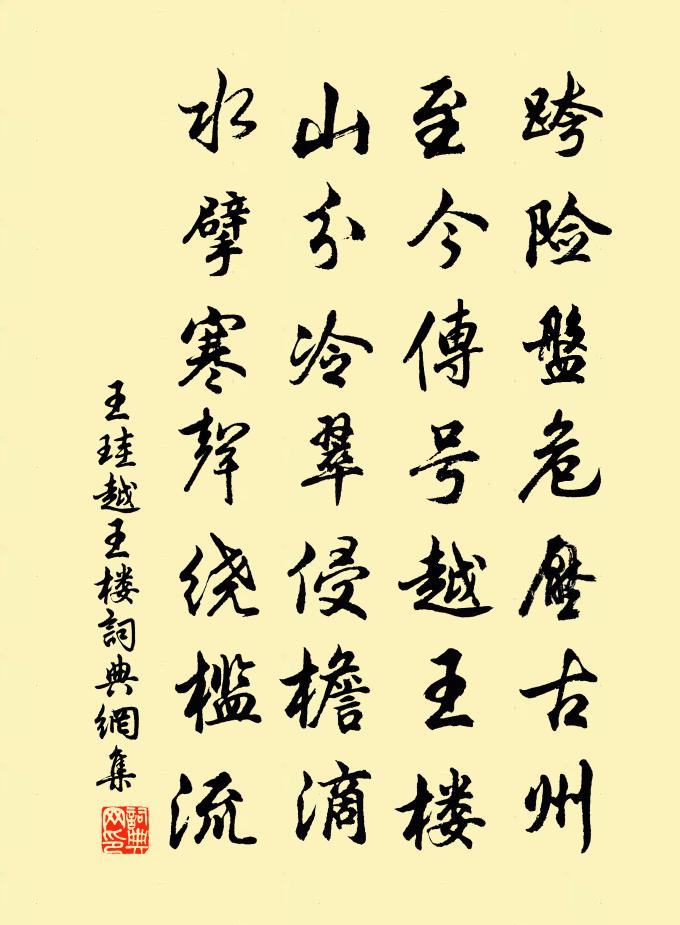 跨险盤危壓古州
至今傳号越王楼
山分冷翠侵檐滴
水擘寒聲绕檻流
王珪越王楼詞典網集
詞典网印